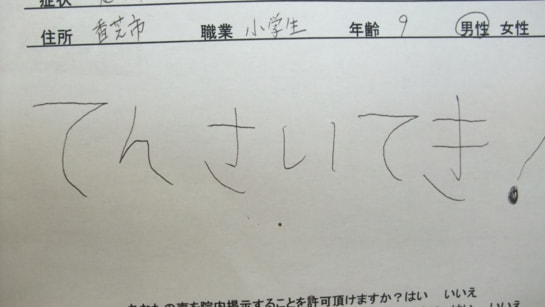 症状
住所 香芝市 職業 小学生 年齢 9 男性 女性
てんさいてき!
を院内掲示することを許可頂けますか?はい いいえ